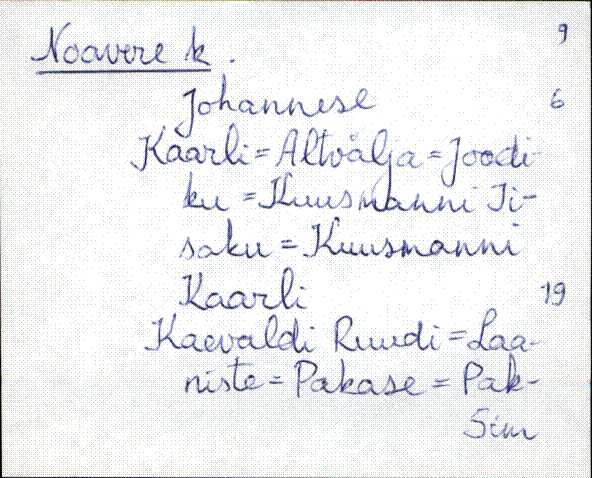 9
Noavere k.
Johannese 6
Kaarli = Altvälja = Joodi-
ku = Kuusmanni Ii-
saku = Kuusmanni
Kaarli 19
Kaevaldi Ruudi = Laa-
niste = Pakase = Pak-
Sim